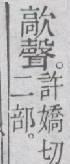 歊聲。
許嬌切
二部。